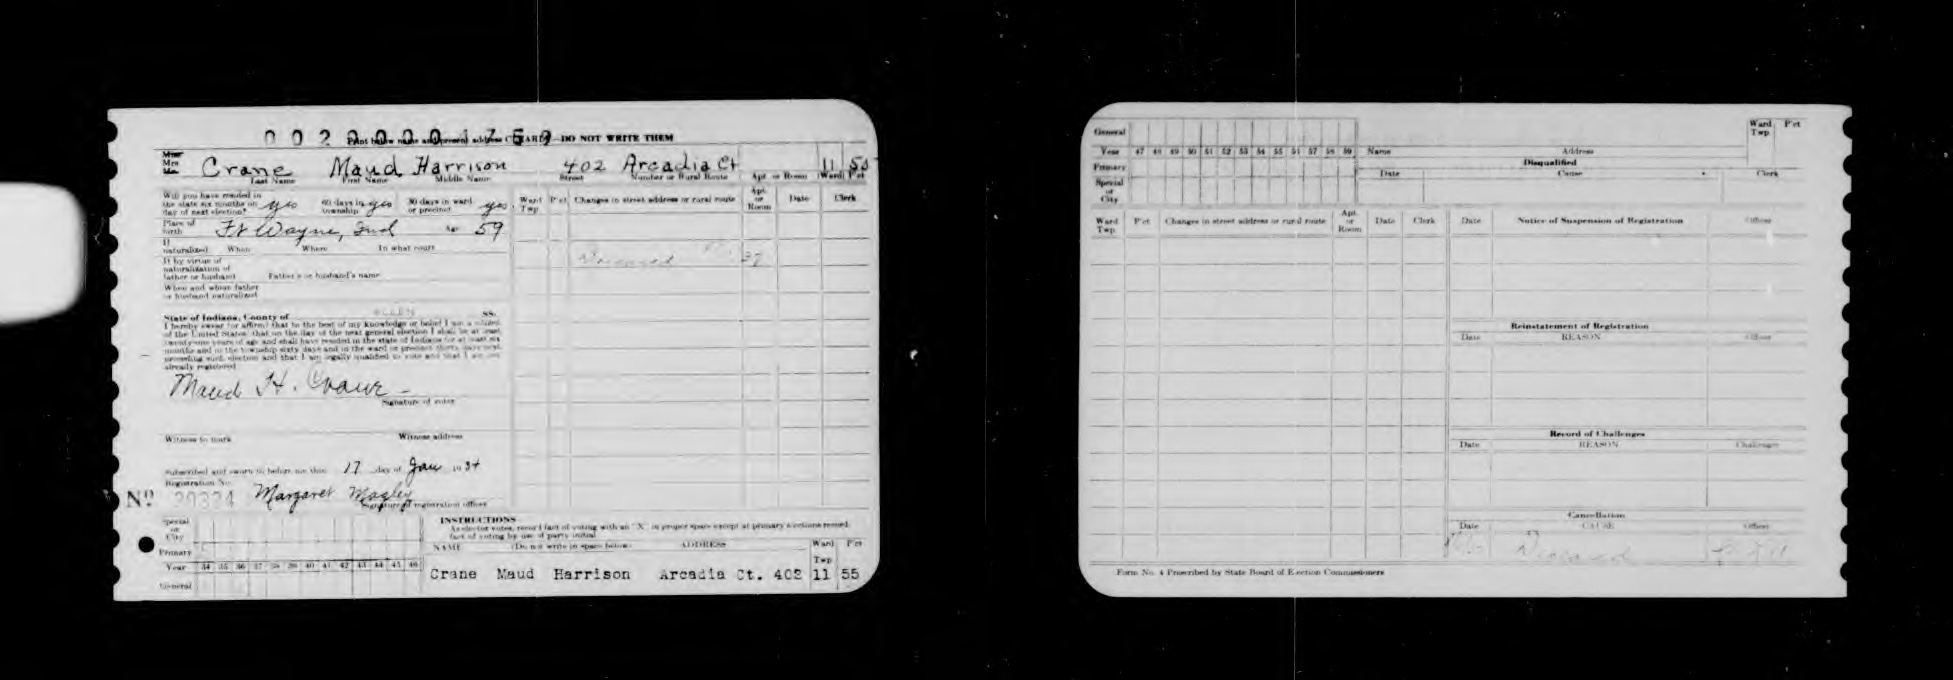 002 0000 1759
Print below name and present address CLEARLY—DO NOT WRITE THEM
Mrs
Crane Maud Harrison 402 Arcadia Ct 11 55
Last Name First Name Middle Name Street Number or Rural Route Apt. or Room Ward P'ct
Will you have resided in the state six months on day of next election? yes 60 days in township yes 30 days in ward or precinct yes
Ward Twp. P'ct Changes in street address or rural route Apt. or Room Date Clerk
Place of birth Ft Wayne, Ind Age 59
If naturalized When Where In what court
Deceased 37
If by virtue of naturalization of father or husband Father's or husband's name
When and where father or husband naturalized
State of Indiana, County of ALLEN SS.
I hereby swear (or affirm) that to the best of my knowledge or belief I am a citizen
of the United States; that on the day of the next general election I shall be at least
twenty-one years of age and shall have resided in the state of Indiana for at least six
months and in the township sixty days and in the ward or precinct thirty days next
preceding such election and that I am legally qualified to vote and that I am not
already registered
Maud H. Crane
Signature of voter
Witness to mark Witness address
Subscribed and sworn to before me this 17 day of Jan 1934
Registration No.
No 29324 Margaret Magley
Signature of registration officer
Special or City
Primary
Year 34 35 36 37 38 39 40 41 42 43 44 45 46
General
INSTRUCTIONS
As elector votes, record fact of voting with an "X" in proper space except at primary elections record
fact of voting by use of party initial
NAME (Do not write in space below) ADDRESS Ward Twp P'ct
Crane Maud Harrison Arcadia Ct. 402 11 55
General
Year 47 48 49 50 51 52 53 54 55 56 57 58 59 Name Address Ward Twp. P'ct
Primary
Special or City
Disqualified
Date Cause Clerk
Ward Twp. P'ct Changes in street address or rural route Apt. or Room Date Clerk Date Notice of Suspension of Registration Officer
Reinstatement of Registration
Date REASON Officer
Record of Challenges
Date REASON Challenger
Cancellation
Date CAUSE Officer
Deceased
Form No. 4 Prescribed by State Board of Election Commissioners